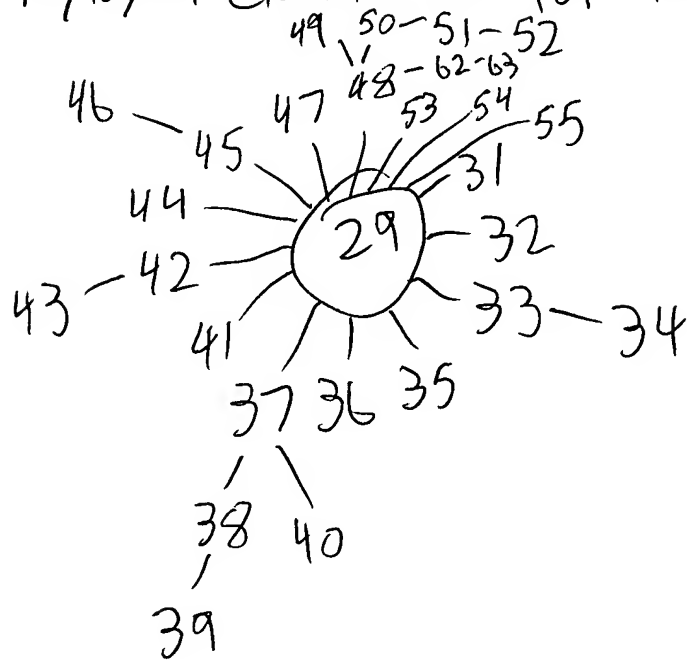 49 50-51-52
48-62-63
46 47 53 54 55
45 31
44 29 32
43-42 33-34
41
37 36 35
38 40
39